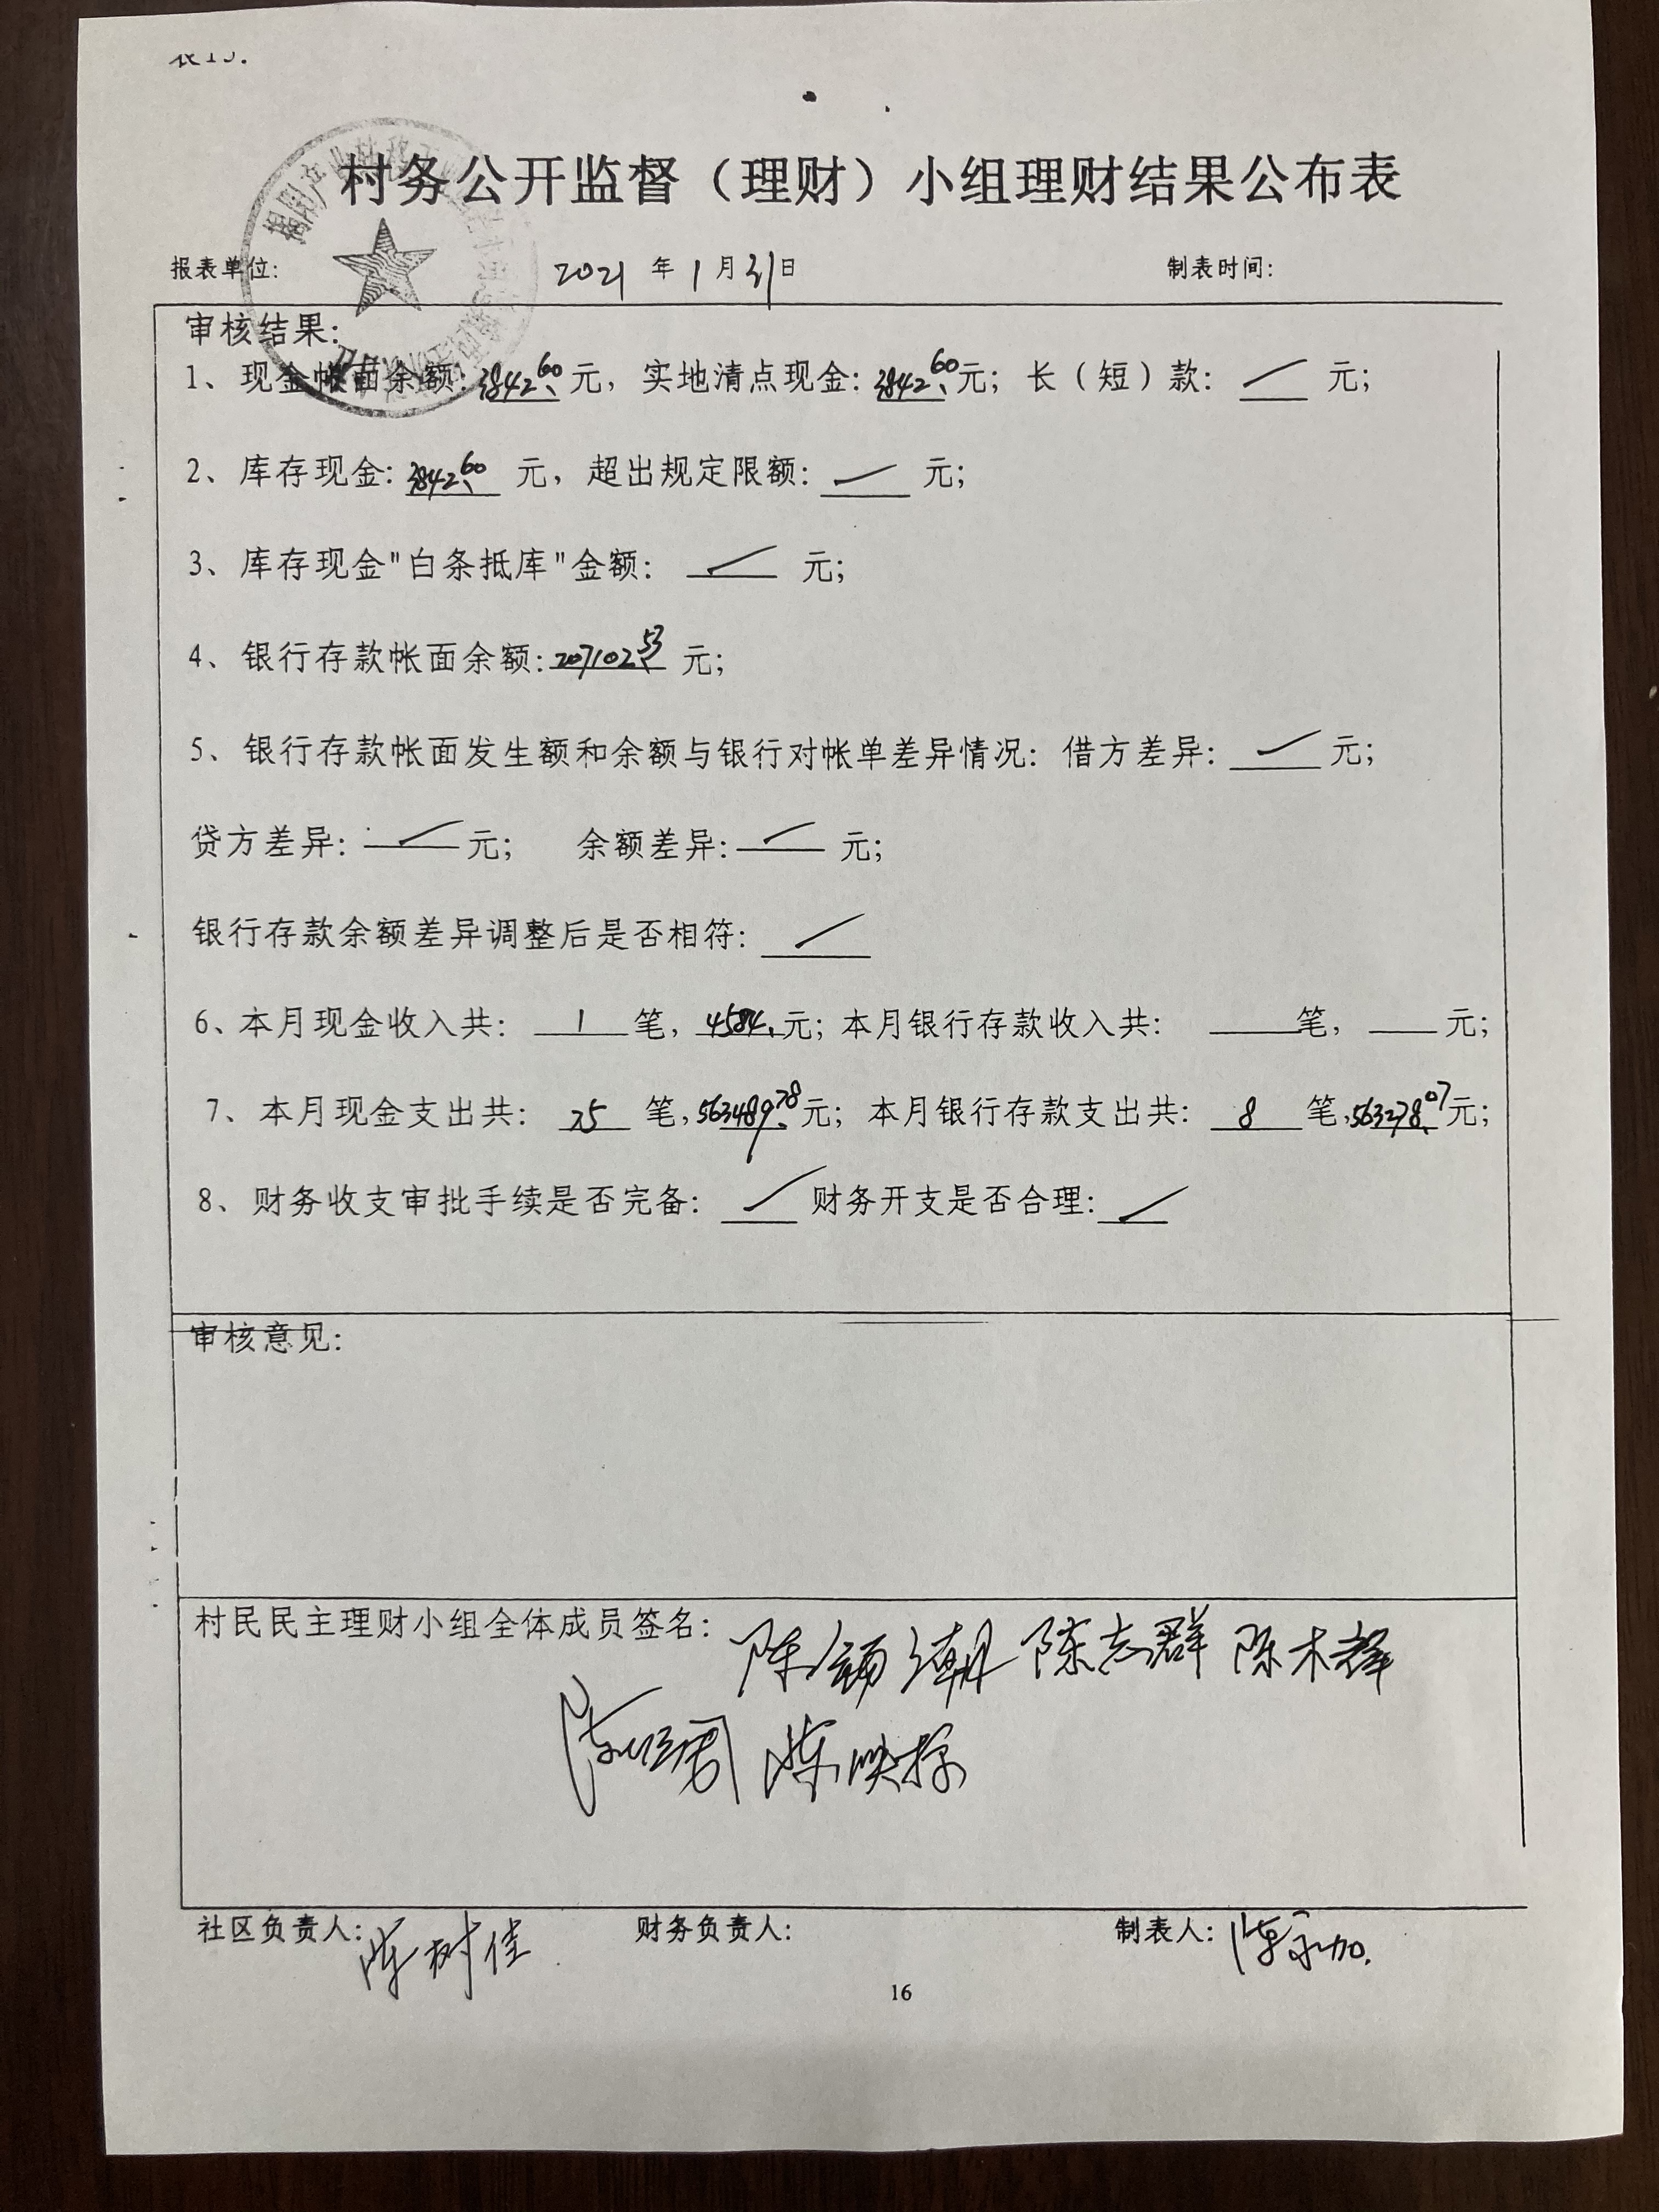 表15.
村务公开监督（理财）小组理财结果公布表
报表单位: 2021 年 1 月 31 日 制表时间:
审核结果:
1、现金帐面余额: 3842.60 元，实地清点现金: 3842.60 元; 长（短）款: 元;
2、库存现金: 3842.60 元，超出规定限额: 元;
3、库存现金"白条抵库"金额: 元;
4、银行存款帐面余额: 207102.53 元;
5、银行存款帐面发生额和余额与银行对帐单差异情况: 借方差异: 元;
贷方差异: 元; 余额差异: 元;
银行存款余额差异调整后是否相符:
6、本月现金收入共: 1 笔, 4584. 元; 本月银行存款收入共: 笔, 元;
7、本月现金支出共: 25 笔, 563489.78 元; 本月银行存款支出共: 8 笔, 563278.07 元;
8、财务收支审批手续是否完备: 财务开支是否合理:
审核意见:
村民民主理财小组全体成员签名:
陈 潮 陈志群 陈木
陈 陈映
社区负责人: 陈树佳 财务负责人: 制表人: 陈
16